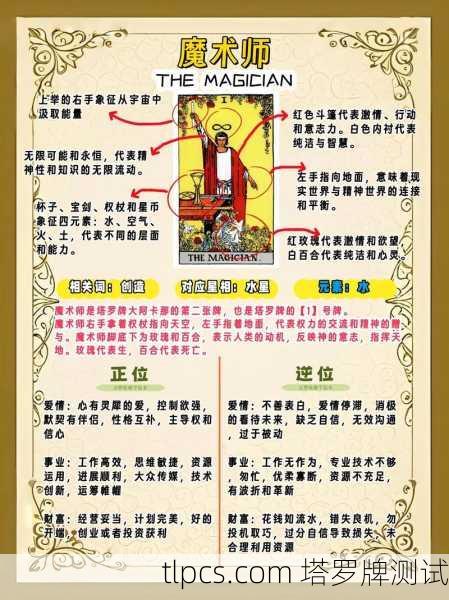 魔术师
THE MAGICIAN
上举的右手象征从宇宙中
汲取能量
无限可能和永恒，代表精
神性和知识的无限流动。
杯子、宝剑、权杖和星币
象征四元素：水、空气、
火、土，代表不同的层面
和能力。
I
THE MAGICIAN.
红色斗篷代表激情、行动
和意志力。白色内衬代表
纯洁与智慧。
左手指向地面，意味着现
实世界与精神世界的连接
和平衡。
红玫瑰代表激情和欲望
白百合代表纯洁和心灵。
相关词：创造
对应星相：水星
元素：水
魔术师是塔罗牌大阿卡那的第二张牌，也是塔罗牌的【1】号牌。
魔术师右手拿着权杖指向天空，左手指着地面，代表权力的交流和精神的赠
与。魔术师脚底下为玫瑰和百合，表示人类的动机，反映神的意志，指挥天
地。玫瑰代表生，百合代表死亡。
正位
爱情：心有灵犀的爱，控制欲强，
默契有伴侣，性格互补，主导权和
信心
事业：工作高效，思维敏捷，资源
运用，进展顺利，大众传媒，技术
创新，运筹帷幄
财富：经营妥当，计划完美，好的
开端，创业或者投资获利
逆位
爱情：不善表白，爱情停滞，消极
的看待未来，缺乏自信，无效沟通
，过于被动
事业：工作无作为，专业技术不够
，匆忙，优柔寡断，资源不充足，
有波折和革新
财富：花钱如流水，错失良机，勿
投机取巧，过分自信导致损失，未
合理利用资源
tlpcs.com 塔罗牌测试